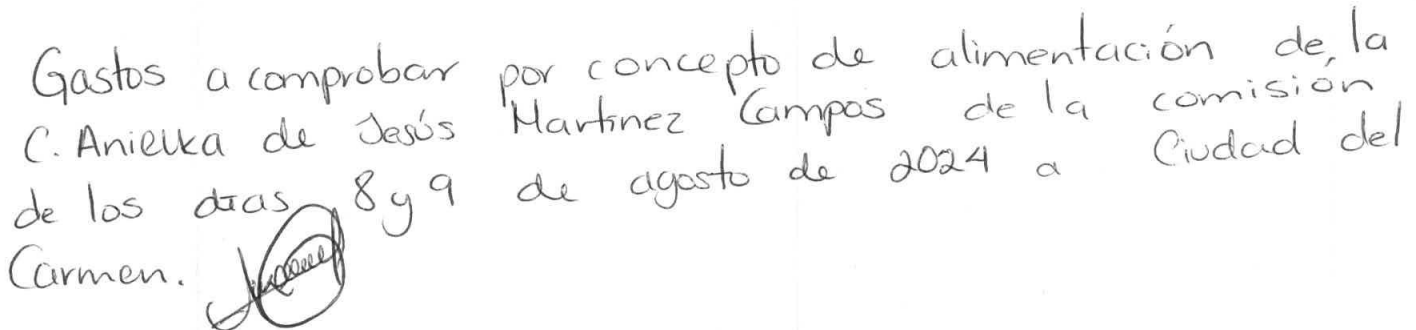 Gastos a comprobar por concepto de alimentación de la
C. Anielka de Jesús Martinez Campos de la comisión
de los días 8 y 9 de agosto de 2024 a Ciudad del
Carmen.